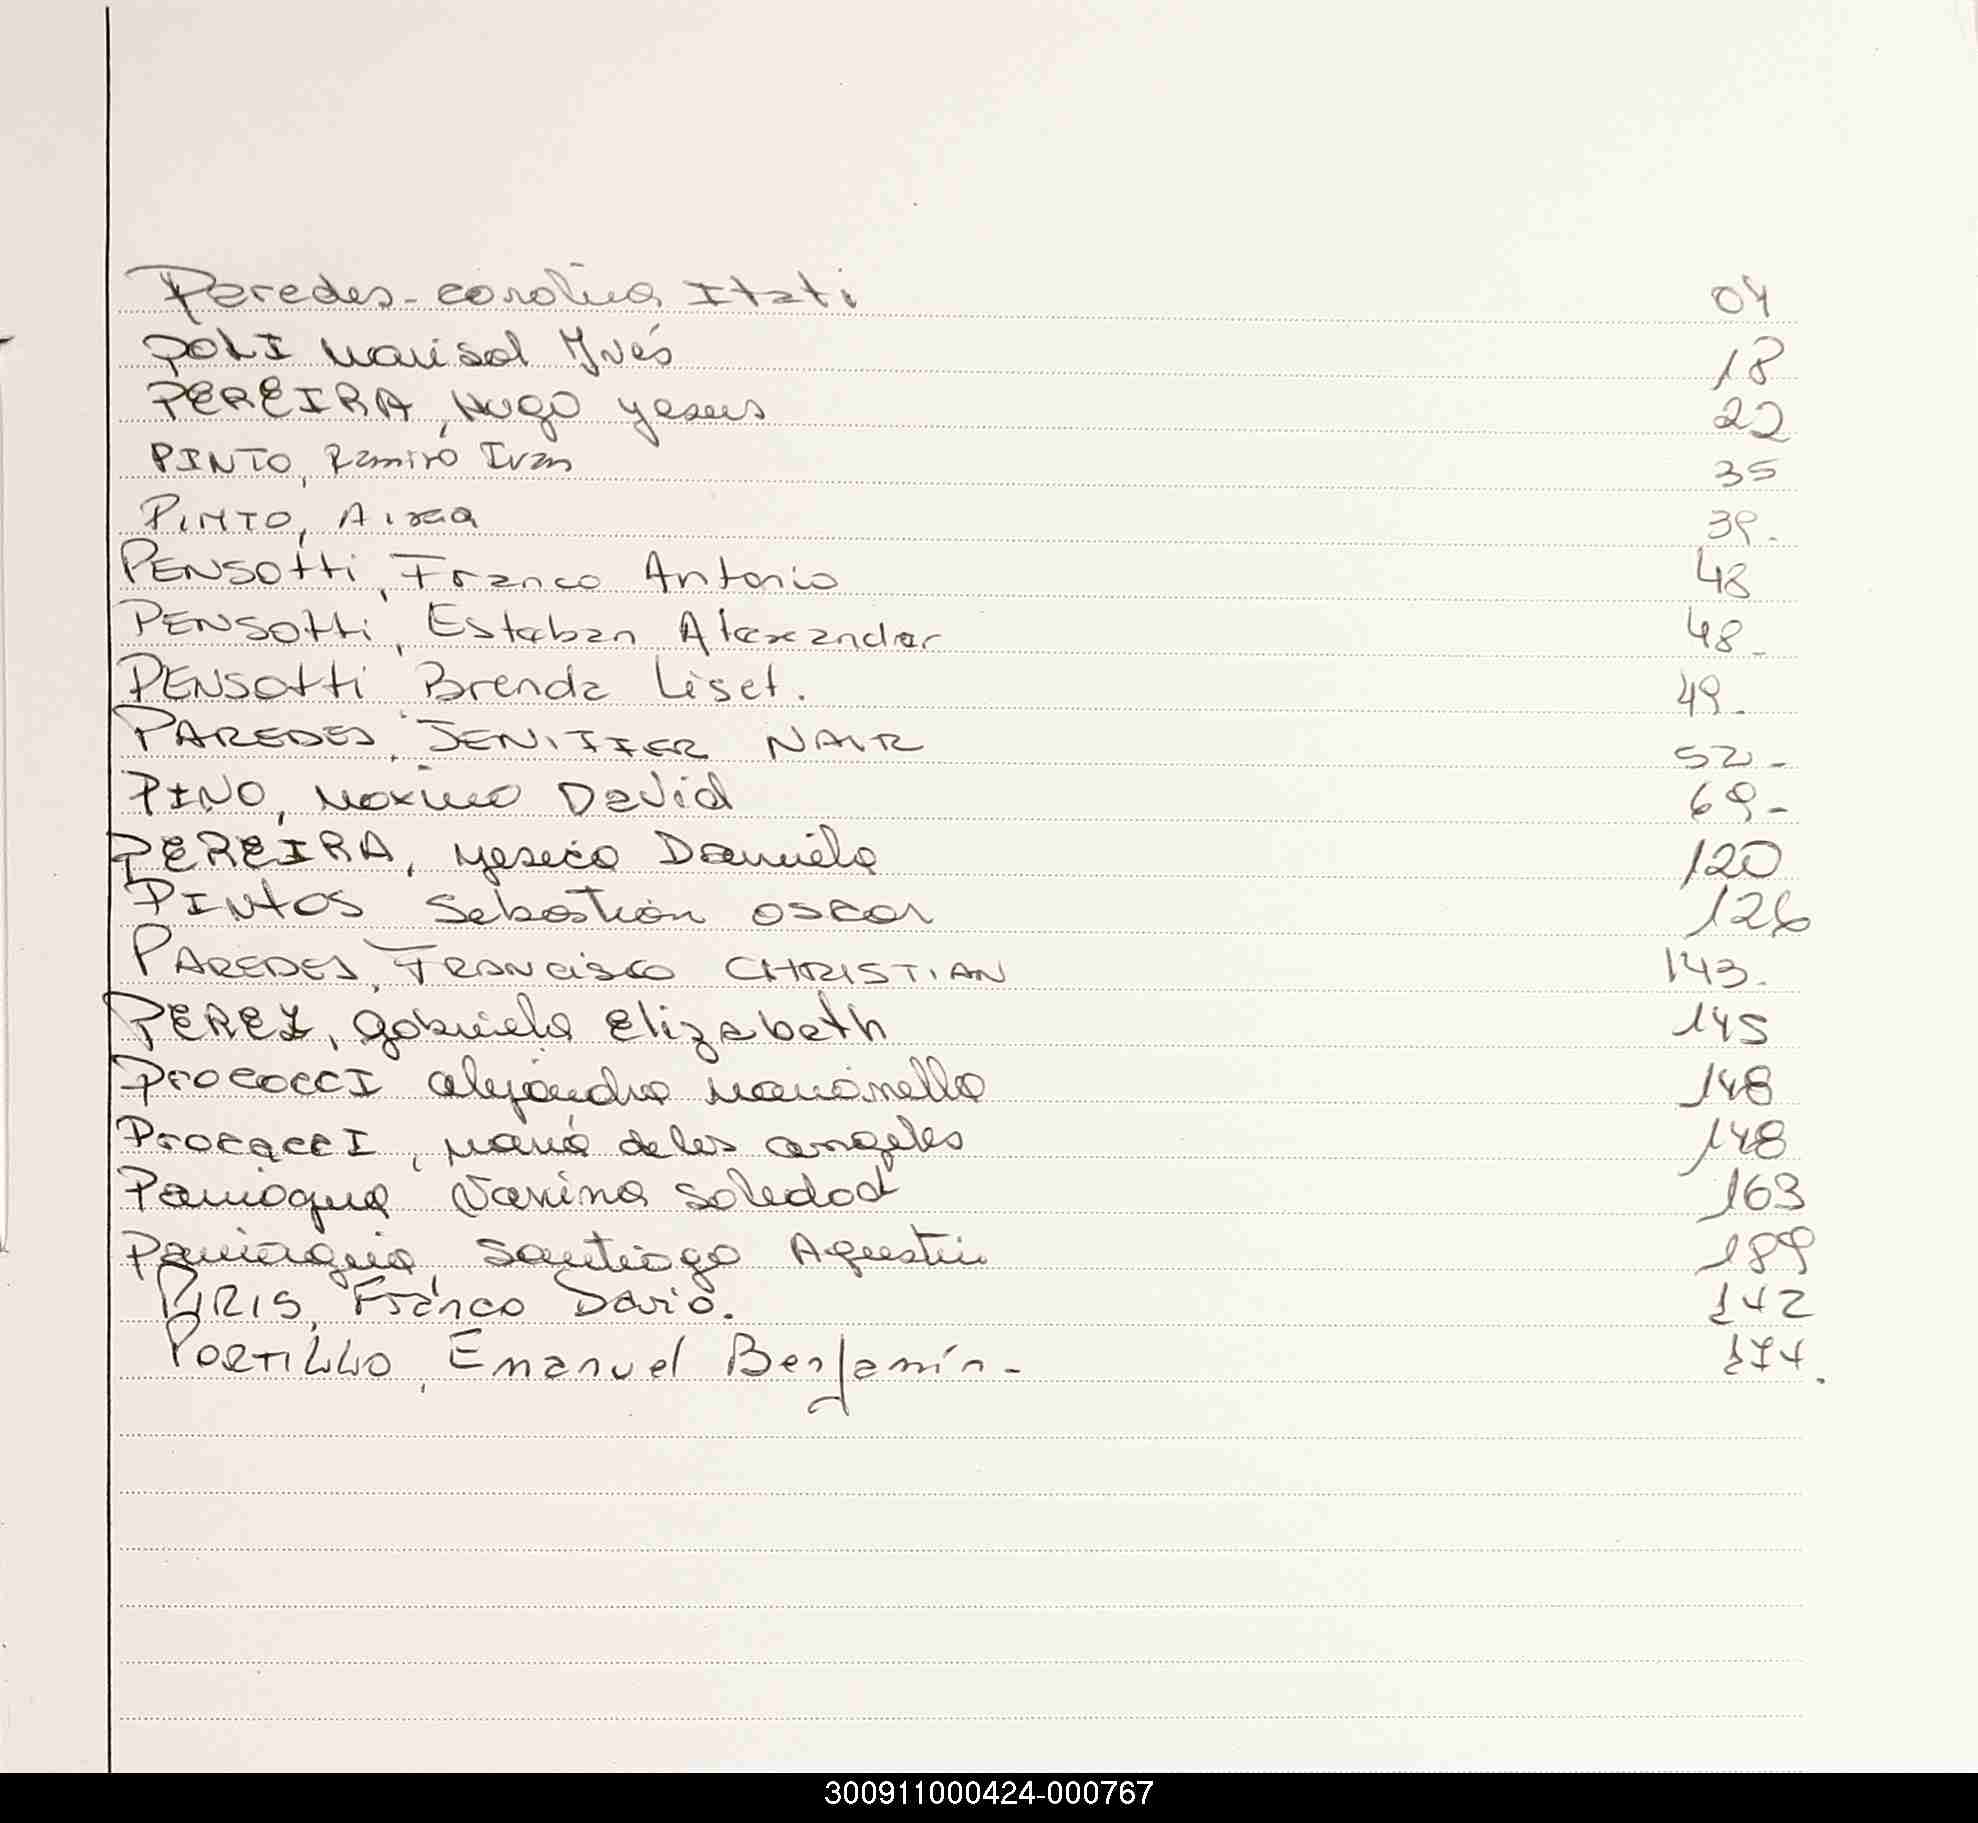 Paredes - Carolina Itati 04
POLI Marisol Ynés 18
PEREIRA, Hugo yesus 22
PINTO, Ramiro Ivan 35
PINTO, Aixa 39.
PENSOtti, Franco Antonio 48
PENSOtti, Esteban Alexander 48-
PENSOtti Brenda Liset. 49-
PAREDES, JENIFFER NAIR 52-
PINO, Maximo David 69-
PEREIRA, yesica Daniela 120
PINtOS Sebastián OSCAR 126
PAREDES, FRANCISCO CHRISTIAN 143.
PEREZ, gabriela Elizabeth 145
ProcacCI alejandra 148
ProcaccI, María de los angeles 148
Paniagua Vanina Soledad 163
Paniagua, Santiago Agustin 189
PIRIS, Franco Dario. 142
PORTILLO, Emanuel Benjamín- 174.
300911000424-000767